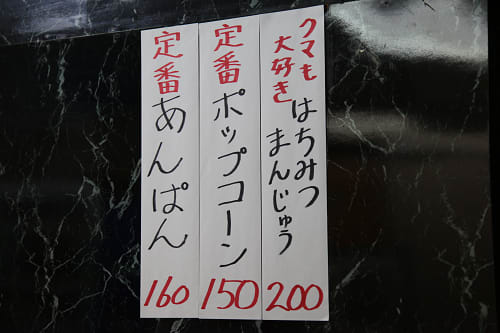 クマも
大好き
はちみつ
まんじゅう
200
定番
ポップコーン
150
定番
あんぱん
160